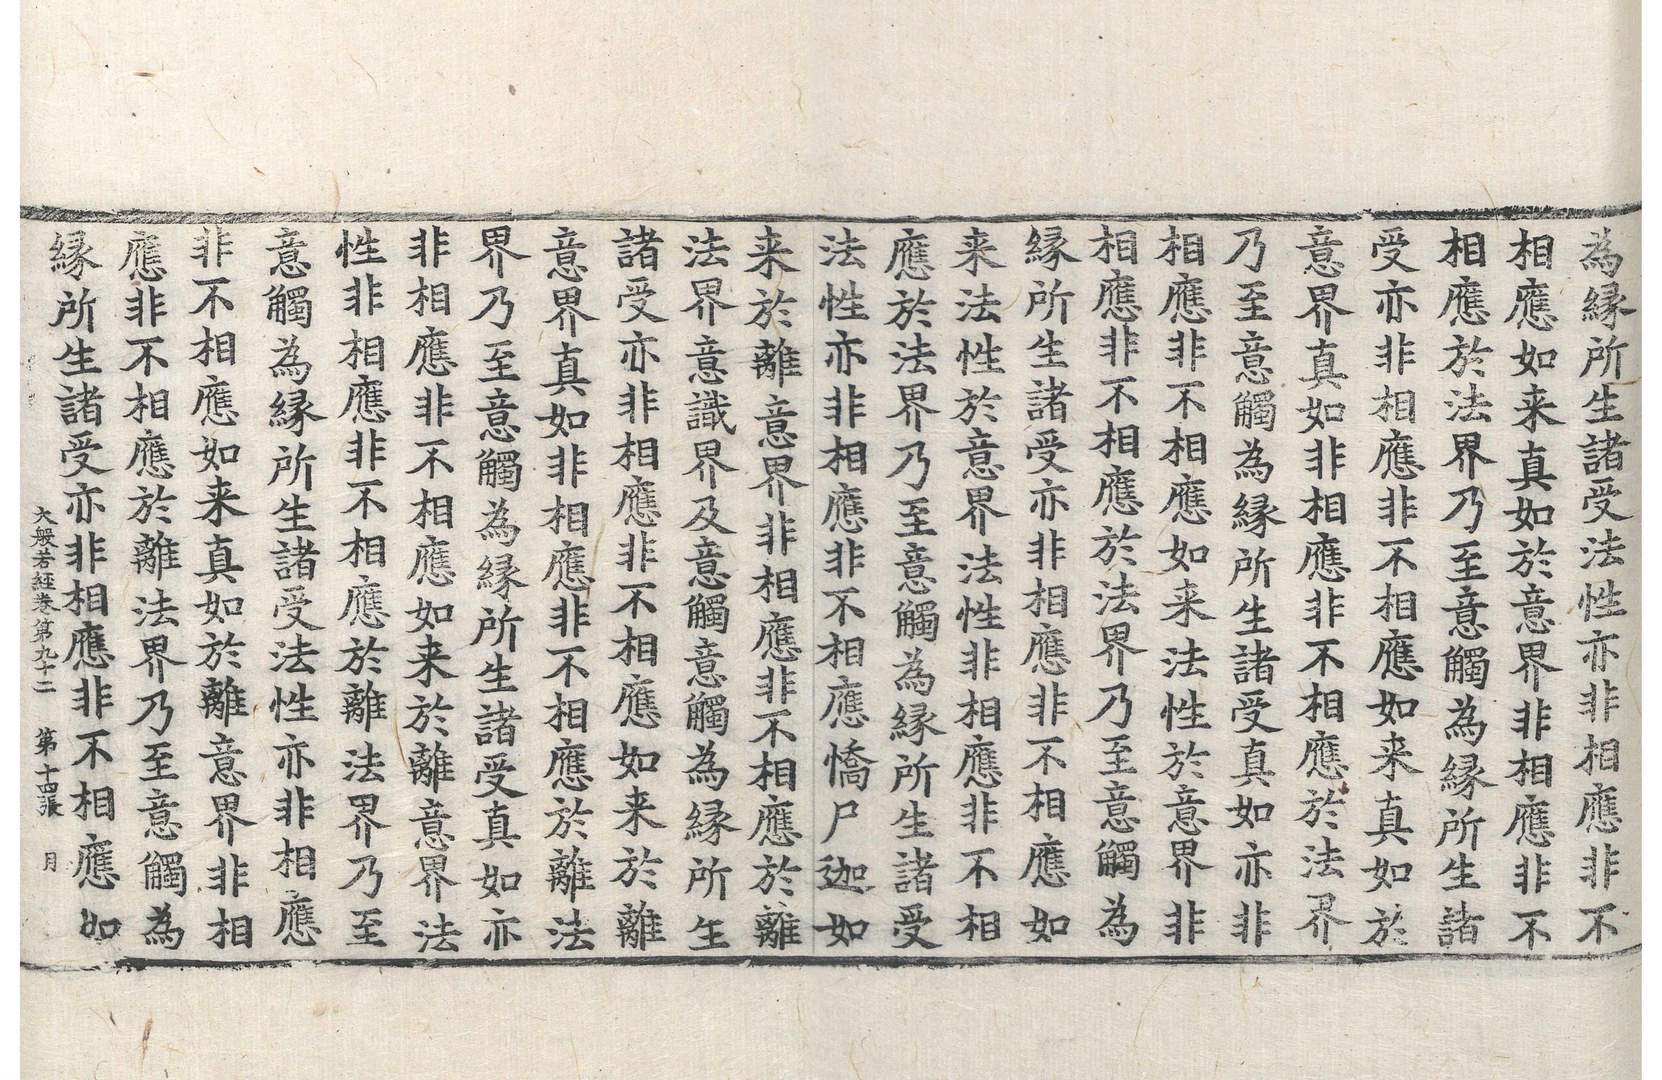 為縁所生諸受法性亦非相應非不
相應如来真如於意界非相應非不
相應於法界乃至意觸為縁所生諸
受亦非相應非不相應如来真如於
意界真如非相應非不相應於法界
乃至意觸為縁所生諸受真如亦非
相應非不相應如来法性於意界非
相應非不相應於法界乃至意觸為
縁所生諸受亦非相應非不相應如
来法性於意界法性非相應非不相
應於法界乃至意觸為縁所生諸受
法性亦非相應非不相應憍尸迦如
来於離意界非相應非不相應於離
法界意識界及意觸意觸為縁所生
諸受亦非相應非不相應如来於離
意界真如非相應非不相應於離法
界乃至意觸為縁所生諸受真如亦
非相應非不相應如来於離意界法
性非相應非不相應於離法界乃至
意觸為縁所生諸受法性亦非相應
非不相應如来真如於離意界非相
應非不相應於離法界乃至意觸為
縁所生諸受亦非相應非不相應如
大般若經卷第九十二 第十四張 月